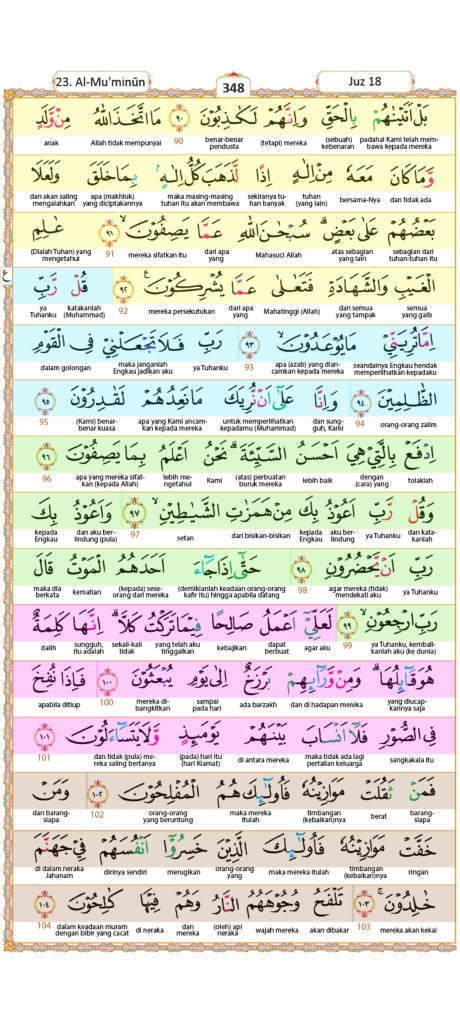 23. Al-Mu'minūn
348
Juz 18
بَلْ اَتَيْنٰهُمْ بِالْحَقِّ وَاِنَّهُمْ لَكٰذِبُوْنَ ٩٠ مَا اتَّخَذَ اللّٰهُ مِنْ وَّلَدٍ
padahal Kami telah membawa kepada mereka (sebuah) kebenaran (tetapi) mereka benar-benar pendusta 90 Allah tidak mempunyai anak
وَّمَا كَانَ مَعَهٗ مِنْ اِلٰهٍ اِذًا لَّذَهَبَ كُلُّ اِلٰهٍۢ بِمَا خَلَقَ وَلَعَلَا
dan tidak ada bersama-Nya tuhan (yang lain) sekiranya tuhan banyak maka masing-masing tuhan itu akan membawa apa (makhluk) yang diciptakannya dan akan saling mengalahkan
بَعْضُهُمْ عَلٰى بَعْضٍۗ سُبْحٰنَ اللّٰهِ عَمَّا يَصِفُوْنَۙ ٩١ عٰلِمِ
sebagian dari tuhan-tuhan itu atas sebagian yang lain Mahasuci Allah dari apa yang mereka sifatkan itu 91 (Dialah Tuhan) yang mengetahui
الْغَيْبِ وَالشَّهَادَةِ فَتَعٰلٰى عَمَّا يُشْرِكُوْنَ ࣖ ٩٢ قُلْ رَّبِّ
semua yang gaib dan semua yang tampak Mahatinggi (Allah) dari apa yang mereka persekutukan 92 katakanlah (Muhammad) ya Tuhanku
ع
اِمَّا تُرِيَنِّيْ مَا يُوْعَدُوْنَۙ ٩٣ رَبِّ فَلَا تَجْعَلْنِيْ فِى الْقَوْمِ
seandainya Engkau hendak memperlihatkan kepadaku apa (azab) yang diancamkan kepada mereka 93 ya Tuhanku maka janganlah Engkau jadikan aku dalam golongan
الظّٰلِمِيْنَ ٩٤ وَاِنَّا عَلٰٓى اَنْ نُّرِيَكَ مَا نَعِدُهُمْ لَقٰدِرُوْنَ ٩٥
orang-orang zalim 94 dan sungguh, Kami untuk memperlihatkan kepadamu (Muhammad) apa yang Kami ancamkan kepada mereka (Kami) benar-benar kuasa 95
اِدْفَعْ بِالَّتِيْ هِيَ اَحْسَنُ السَّيِّئَةَۗ نَحْنُ اَعْلَمُ بِمَا يَصِفُوْنَ ٩٦
tolaklah dengan (cara) yang lebih baik (atas) perbuatan buruk mereka Kami lebih mengetahui apa yang mereka sifatkan (kepada Allah) 96
وَقُلْ رَّبِّ اَعُوْذُ بِكَ مِنْ هَمَزٰتِ الشَّيٰطِيْنِۙ ٩٧ وَاَعُوْذُ بِكَ
dan katakanlah ya Tuhanku aku berlindung kepada Engkau dari bisikan-bisikan setan 97 dan aku berlindung (pula) kepada Engkau
رَبِّ اَنْ يَّحْضُرُوْنِ ٩٨ حَتّٰٓى اِذَا جَاۤءَ اَحَدَهُمُ الْمَوْتُ قَالَ
ya Tuhanku agar mereka (tidak) mendekati aku 98 (demikianlah keadaan orang-orang kafir itu) hingga apabila datang (kepada) seseorang dari mereka kematian maka dia berkata
رَبِّ ارْجِعُوْنِۙ ٩٩ لَعَلِّيْٓ اَعْمَلُ صَالِحًا فِيْمَا تَرَكْتُ كَلَّاۗ اِنَّهَا كَلِمَةٌ
ya Tuhanku, kembalikanlah aku (ke dunia) 99 agar aku dapat berbuat kebajikan yang telah aku tinggalkan sekali-kali tidak sungguh, itu adalah dalih
هُوَ قَاۤىِٕلُهَاۗ وَمِنْ وَّرَاۤىِٕهِمْ بَرْزَخٌ اِلٰى يَوْمِ يُبْعَثُوْنَ ١٠٠ فَاِذَا نُفِخَ
yang diucapkannya saja dan di hadapan mereka ada barzakh sampai pada hari mereka dibangkitkan 100 apabila ditiup
فِى الصُّوْرِ فَلَآ اَنْسَابَ بَيْنَهُمْ يَوْمَىِٕذٍ وَّلَا يَتَسَاۤءَلُوْنَ ١٠١
sangkakala itu maka tidak ada lagi pertalian keluarga di antara mereka (pada) hari itu (hari Kiamat) dan tidak (pula) mereka saling bertanya 101
فَمَنْ ثَقُلَتْ مَوَازِيْنُهٗ فَاُولٰۤىِٕكَ هُمُ الْمُفْلِحُوْنَ ١٠٢ وَمَنْ
barangsiapa berat timbangan (kebaikan)nya maka mereka itulah orang-orang yang beruntung 102 dan barangsiapa
خَفَّتْ مَوَازِيْنُهٗ فَاُولٰۤىِٕكَ الَّذِيْنَ خَسِرُوْٓا اَنْفُسَهُمْ فِيْ جَهَنَّمَ
ringan timbangan (kebaikan)nya maka mereka itulah orang-orang yang merugikan dirinya sendiri di dalam neraka Jahanam
خٰلِدُوْنَۚ ١٠٣ تَلْفَحُ وُجُوْهَهُمُ النَّارُ وَهُمْ فِيْهَا كٰلِحُوْنَ ١٠٤
mereka akan kekal 103 akan dibakar wajah mereka (oleh) api neraka dan mereka di neraka dalam keadaan muram dengan bibir yang cacat 104